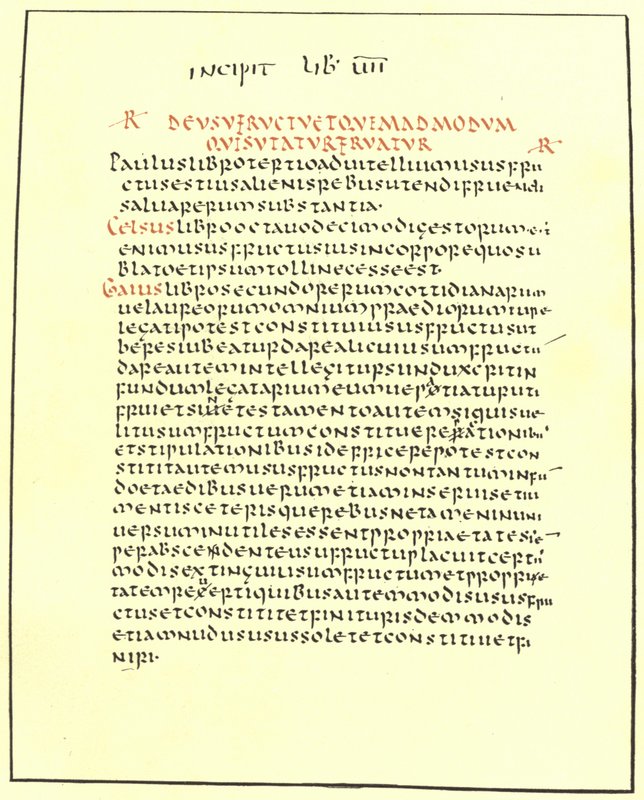 INCIPIT LIB UII
R DEUSUFRUCTUETQUEMADMODUM
QUISUTATURFRUATUR R
Pauluslibrotertioaduitelliumususfru
ctusestiusalienisrebusutendifruendi
saluarerumsubstantia·
Celsuslibrooctauodecimodigestorumest
enimususfructusiusincorporequosu
blatoetipsumtollinecesseest·
Gaiuslibrosecundorerumcottidianarum
uelaureorumomniumpraediorumiurele
gatipotestconstituiususfructusut
heresiubeaturdarealicuiusumfructu
dareautemintellegitursiinduxeritin
fundumlegatariumeumuepatiaturuti
fruietsinetestamentoautemsiquisue
litusumfructumconstituerepactionib
etstipulationibusidefficerepotestcon
stititautemususfructusnontantuminfu
doetaedibusuerumetiaminseruisetiu
mentisceterisquerebusnetameninuni
uersuminutilesessentpropriaetates
perabscedenteusufructuplacuitcerti
modisextinguiusumfructumetproprie
tatemreuertiquibusautemmodisususfru
ctusetconstititetfiniturisdemmodis
etiamnudususussoletetconstituietfi
niri·